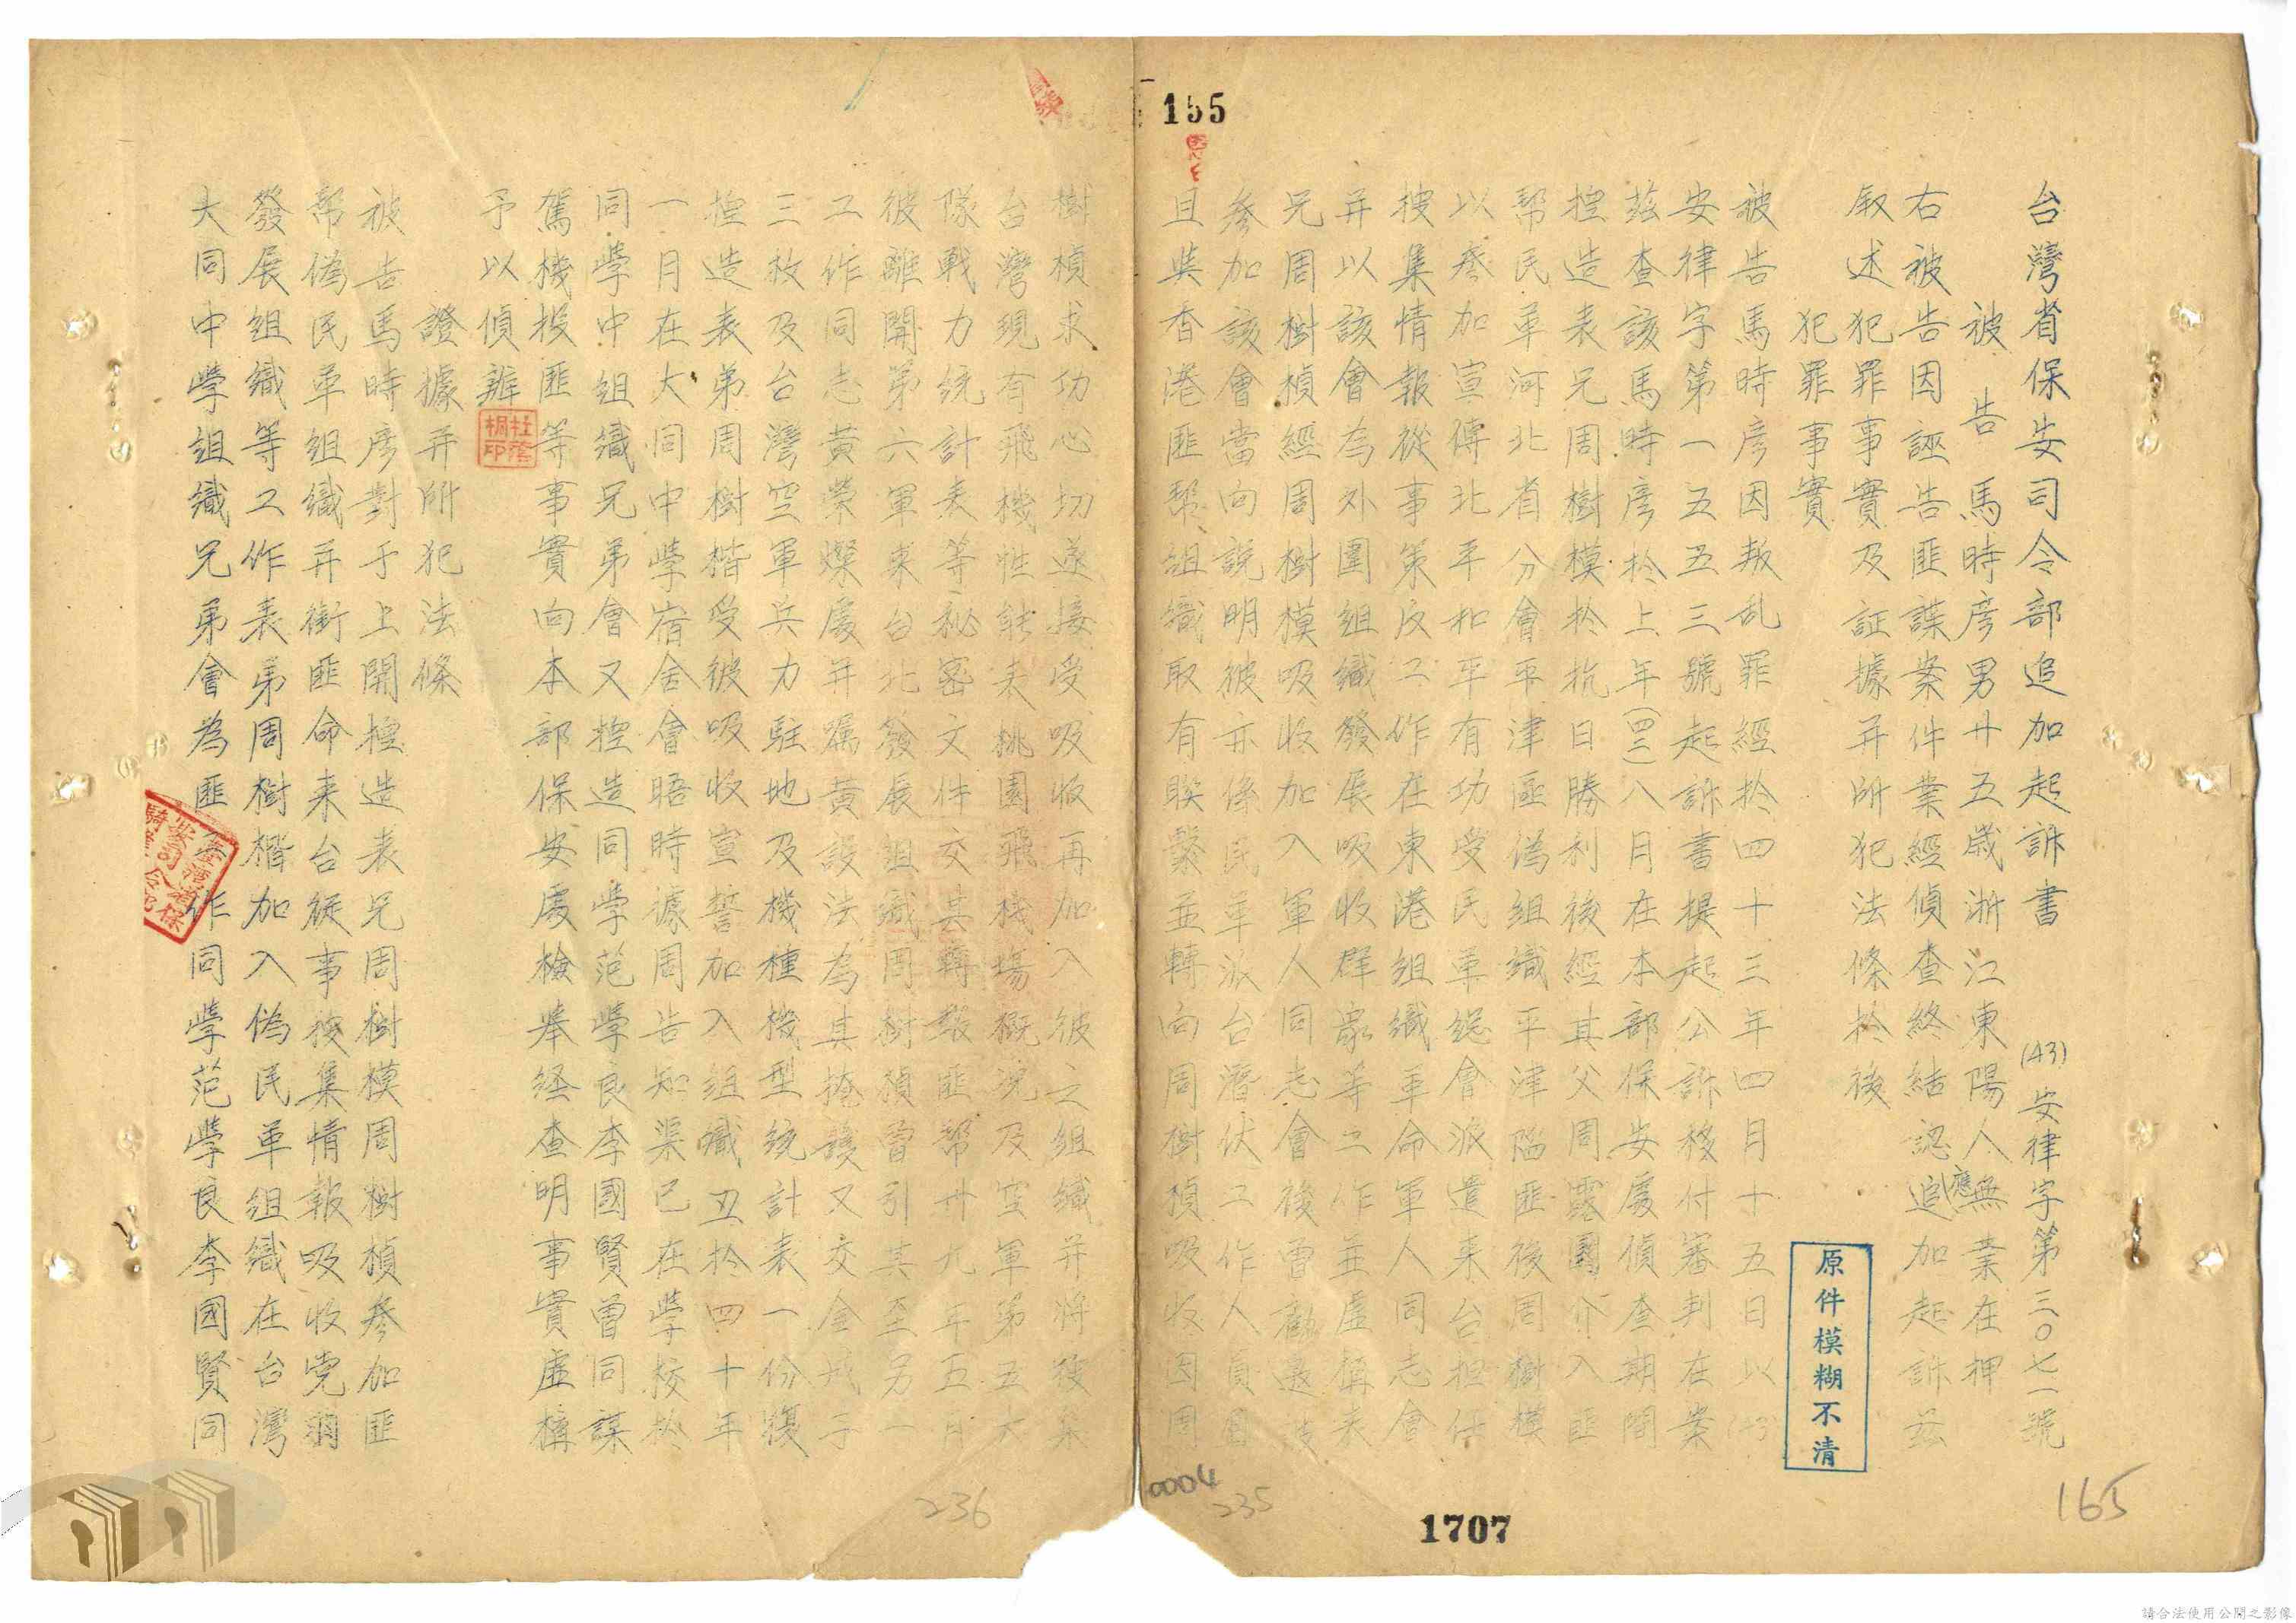 台灣省保安司令部追加起訴書
(43)安律字第三〇七一號
被告馬時彥男廿五歲浙江東陽人無業在押
右被告因誣告匪諜案件業經偵查終結認應追加起訴茲
叙述犯罪事實及証據并所犯法條於後
犯罪事實
被告馬時彥因叛乱罪經於四十三年四月十五日以
安律字第一五五三號起訴書提起公訴移付審判在案
茲查該馬時彥於上年(四二)八月在本部保安處偵查期間
揑造表兄周樹模於抗日勝利後經其父周靄團介入匪
幫民革河北省分會平津區偽組織平津陷匪後周樹模
以參加宣傳北平和平有功受民革總會派遣来台担任
搜集情報從事策反工作在東港組織革命軍人同志會
并以該會為外圍組織發展吸收群眾等工作並虛構表
兄周樹楨經周樹模吸收加入軍人同志會後曾勸
參加該會當向說明彼亦係民革派台潛伏工作人員
且與香港匪幫組織取有聯繫並轉向周樹楨吸收因周
樹楨求功心切遂接受吸收再加入彼之組織并將後
台灣現有飛機性能表桃園飛機場概況及空軍第五大
隊戰力統計表等秘密文件交其轉報匪幫廿九年五月
彼離開第六軍来台北發展組織周樹楨曾引其至另一
工作同志黃榮燦處并囑黃設法為其掩護又交金戒子
三枚及台灣空軍兵力駐地及機種機型統計表一份復
揑造表弟周樹楷受彼吸收宣誓加入組織又於四十年
一月在大同中學宿舍會晤時據周告知渠已在學校於
同學中組織兄弟會又揑造同學范學良李國賢曾同謀
駕機投匪等事實向本部保安處檢舉経查明事實虛構
予以偵辦
杜蔭桐印
證據并所犯法條
被告馬時彥對于上開揑造表兄周樹模周樹楨參加匪
幫偽民革組織并銜匪命来台從事搜集情報吸收党羽
發展組織等工作表弟周樹楷加入偽民革組織在台灣
大同中學組織兄弟會為匪工作同學范學良李國賢同
原件模糊不清
155
1707
165
0004
235
236
請合法使用公開之影像